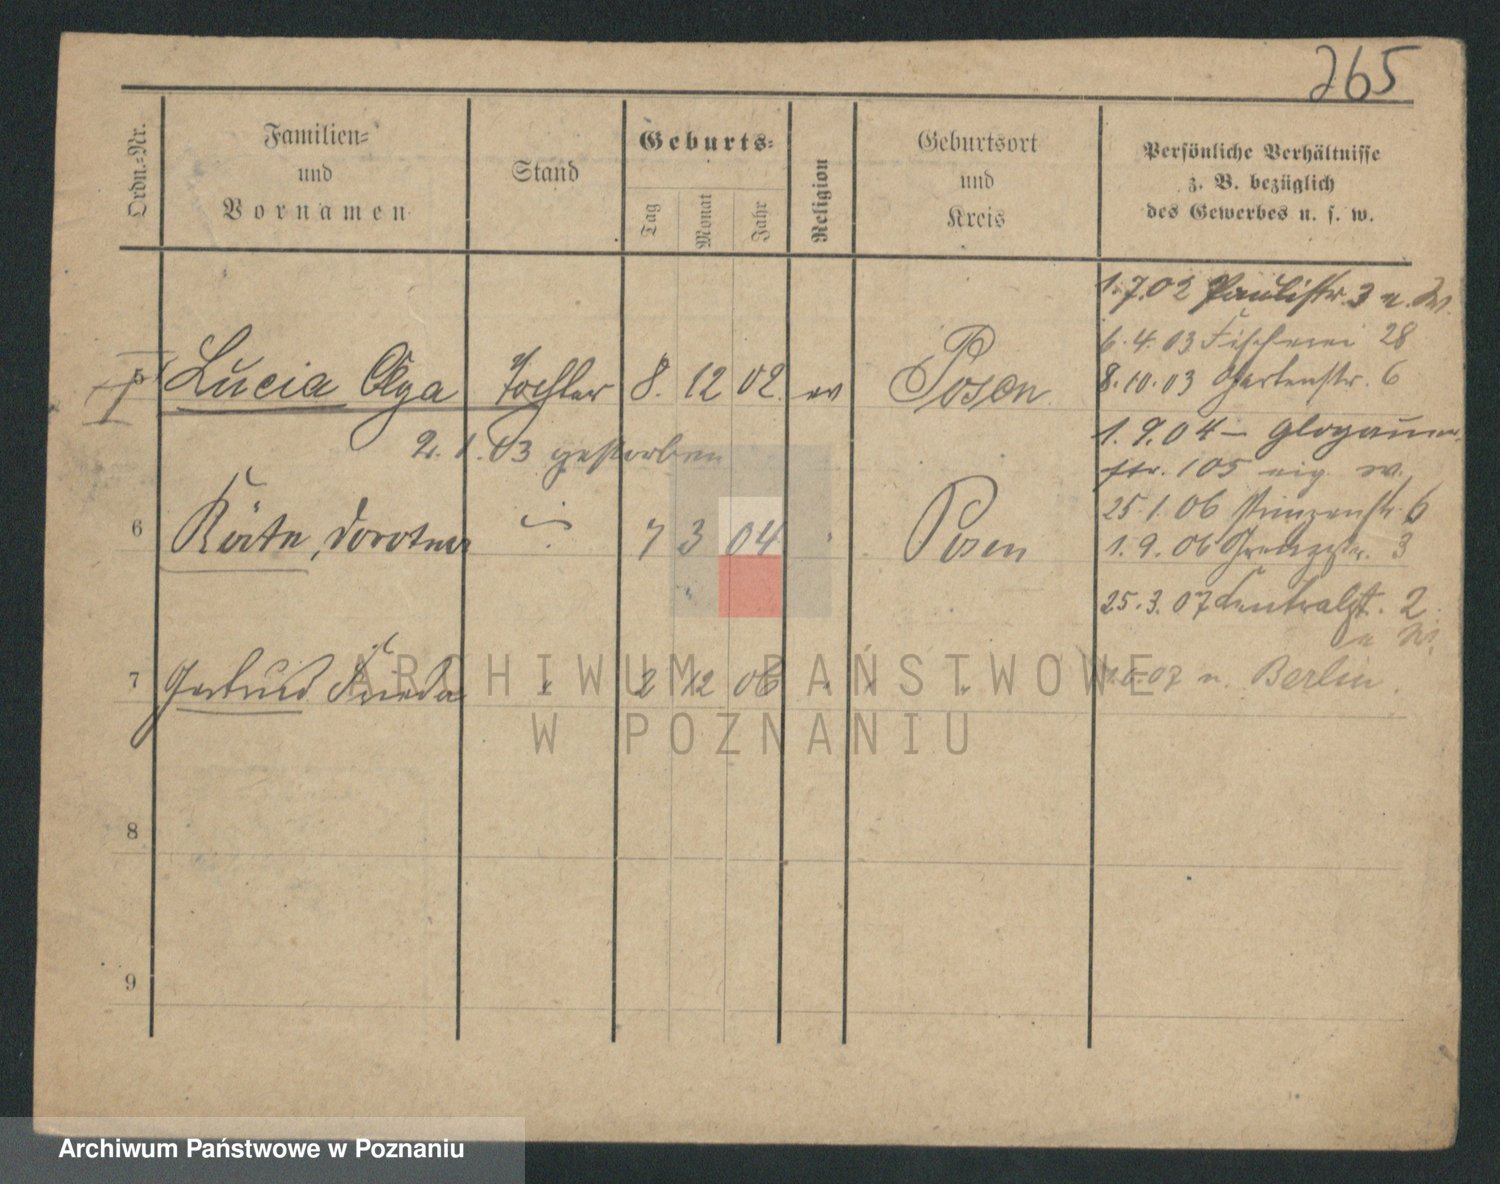 265
Ordn.=Nr.
Familien=
und
Vornamen
Stand
Geburts=
Tag
Monat
Jahr
Religion
Geburtsort
und
Kreis
Persönliche Verhältnisse
z. B. bezüglich
des Gewerbes u. s. w.
1.7.02 Paulistr. 3 u. W.
6.4.03 Fischerei 28
8.10.03 Gartenstr. 6
5 Lucia Olga Tochter 8. 12 02. ev Posen.
1.9.04 – Glogauer
str. 105 eig. W.
2.1.03 gestorben
25.1.06 Prinzenstr. 6
6 Käte, Dorothea 7 3 04 Posen
1.9.06 Grenzstr. 3
25.3.07 Centralst. 2
u W.
7 Gertrud Frieda " 2 12 06 " " "
07 n. Berlin.
8
9
ARCHIWUM PAŃSTWOWE
W POZNANIU
Archiwum Państwowe w Poznaniu